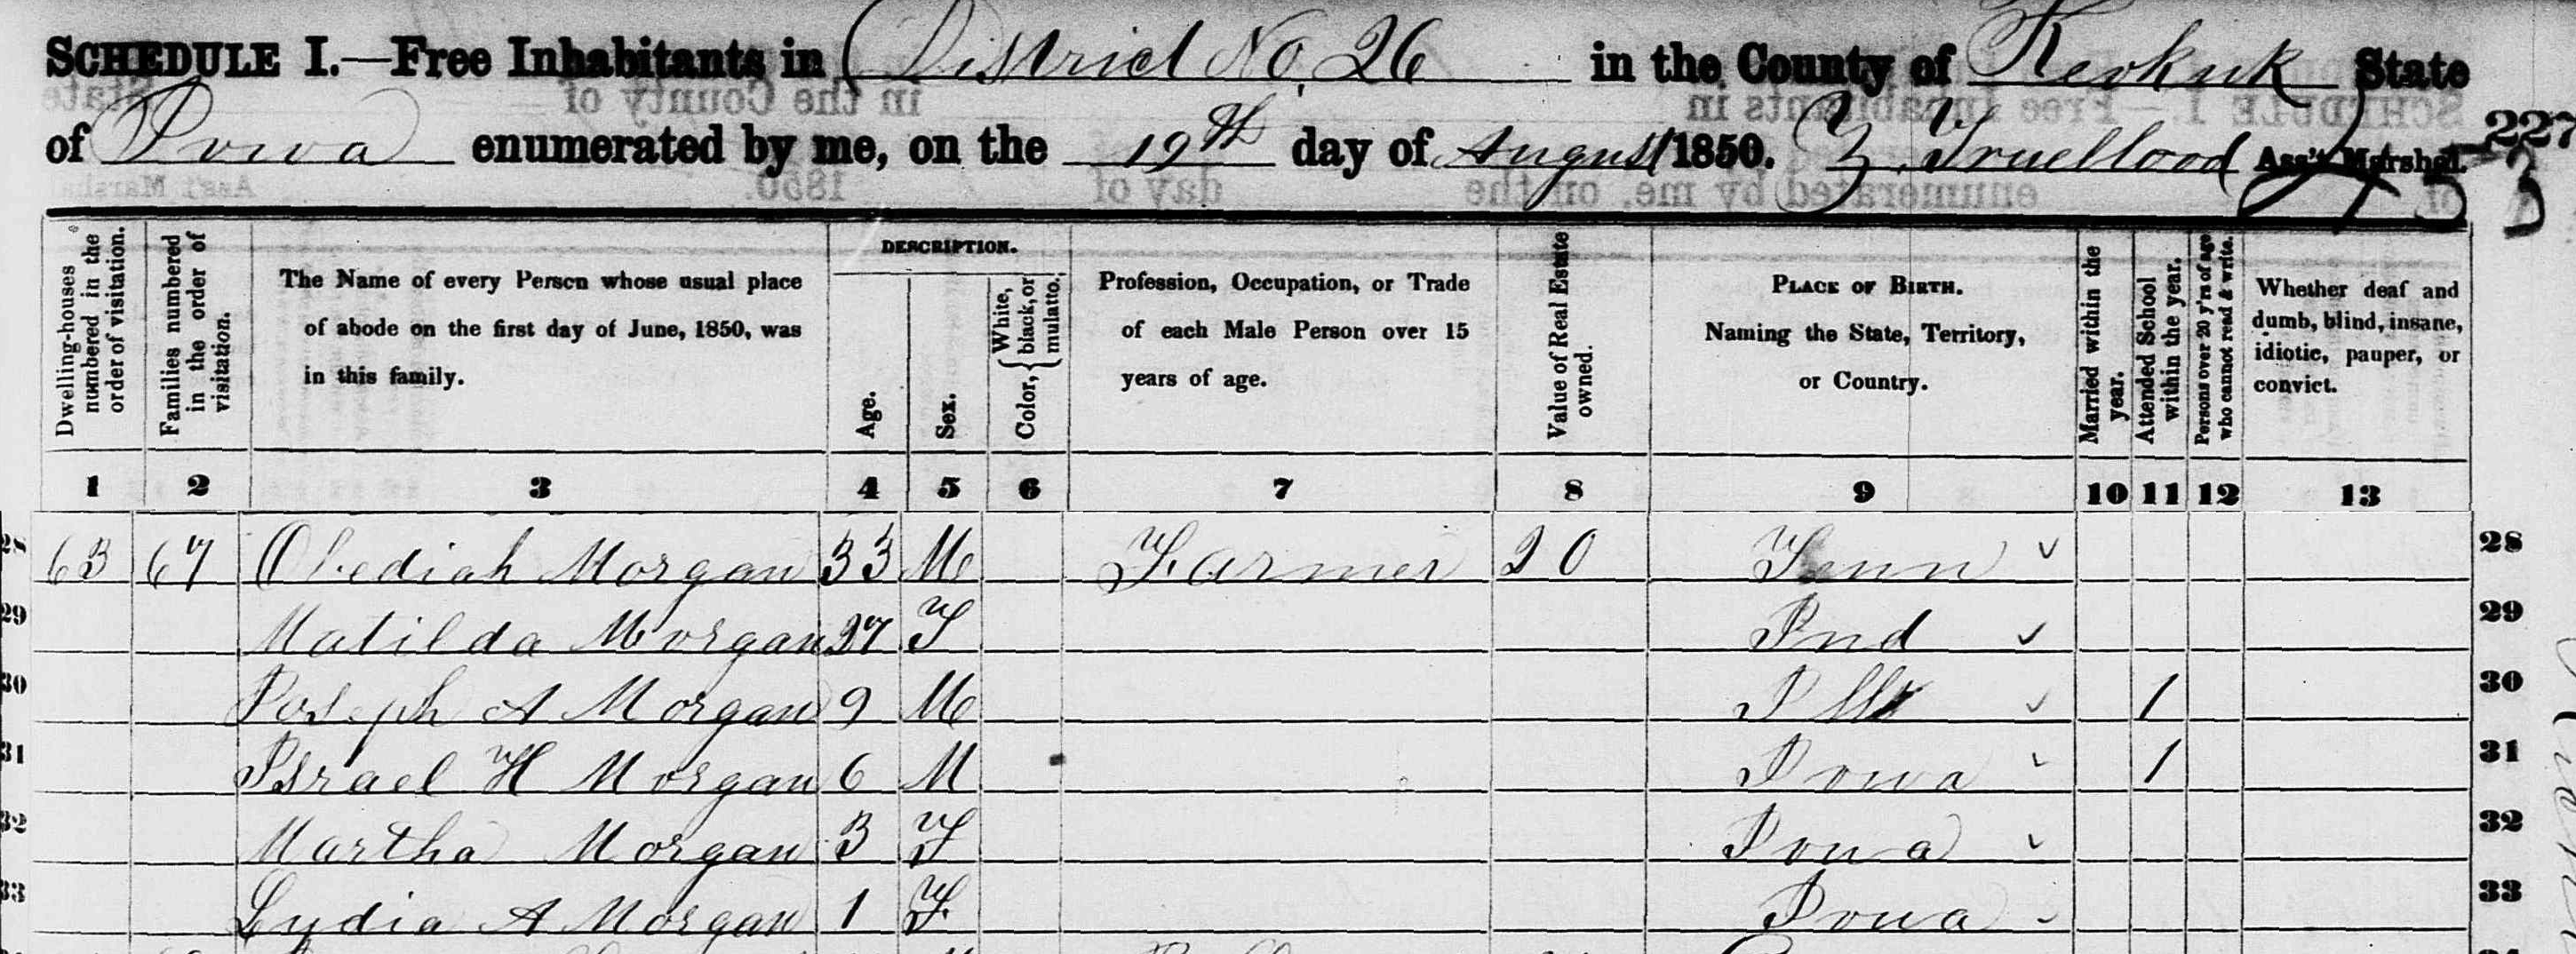 SCHEDULE I.—Free Inhabitants in District No. 26 in the County of Keokuk State
of Iowa enumerated by me, on the 19th day of August 1850. Z. Trueblood Ass't Marshal. 227
Dwelling-houses numbered in the order of visitation.
Families numbered in the order of visitation.
The Name of every Person whose usual place of abode on the first day of June, 1850, was in this family.
DESCRIPTION.
Age.
Sex.
Color, { White, black, or mulatto.
Profession, Occupation, or Trade of each Male Person over 15 years of age.
Value of Real Estate owned.
PLACE OF BIRTH. Naming the State, Territory, or Country.
Married within the year.
Attended School within the year.
Persons over 20 y'rs of age who cannot read & write.
Whether deaf and dumb, blind, insane, idiotic, pauper, or convict.
1 2 3 4 5 6 7 8 9 10 11 12 13
28 63 67 Obediah Morgan 33 M Farmer 20 Tenn 28
29 Matilda Morgan 27 F Ind 29
30 Joseph A Morgan 9 M Ills 1 30
31 Israel H Morgan 6 M Iowa 1 31
32 Martha Morgan 3 F Iowa 32
33 Lydia A Morgan 1 F Iowa 33